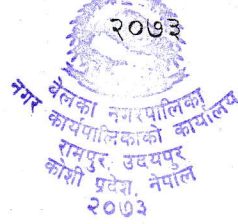 २०७३
बेलका नगरपालिका
नगर कार्यपालिकाको कार्यालय
रामपुर, उदयपुर
कोशी प्रदेश, नेपाल
२०७३